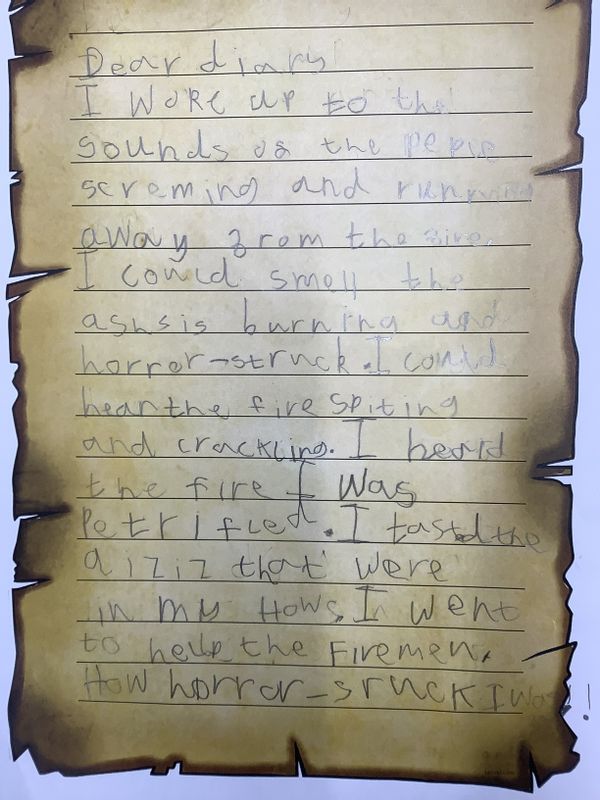 Dear diary
I woke up to the
sounds of the peple
screming and running
away from the fire.
I could smell the
ashsis burning and
horror-struck. I could
hear the fire spiting
and crackling. I heard
the fire I was
Petrified. I tastd the
that were
in my Hows. I went
to help the Firemen.
How horror-sruck I was!